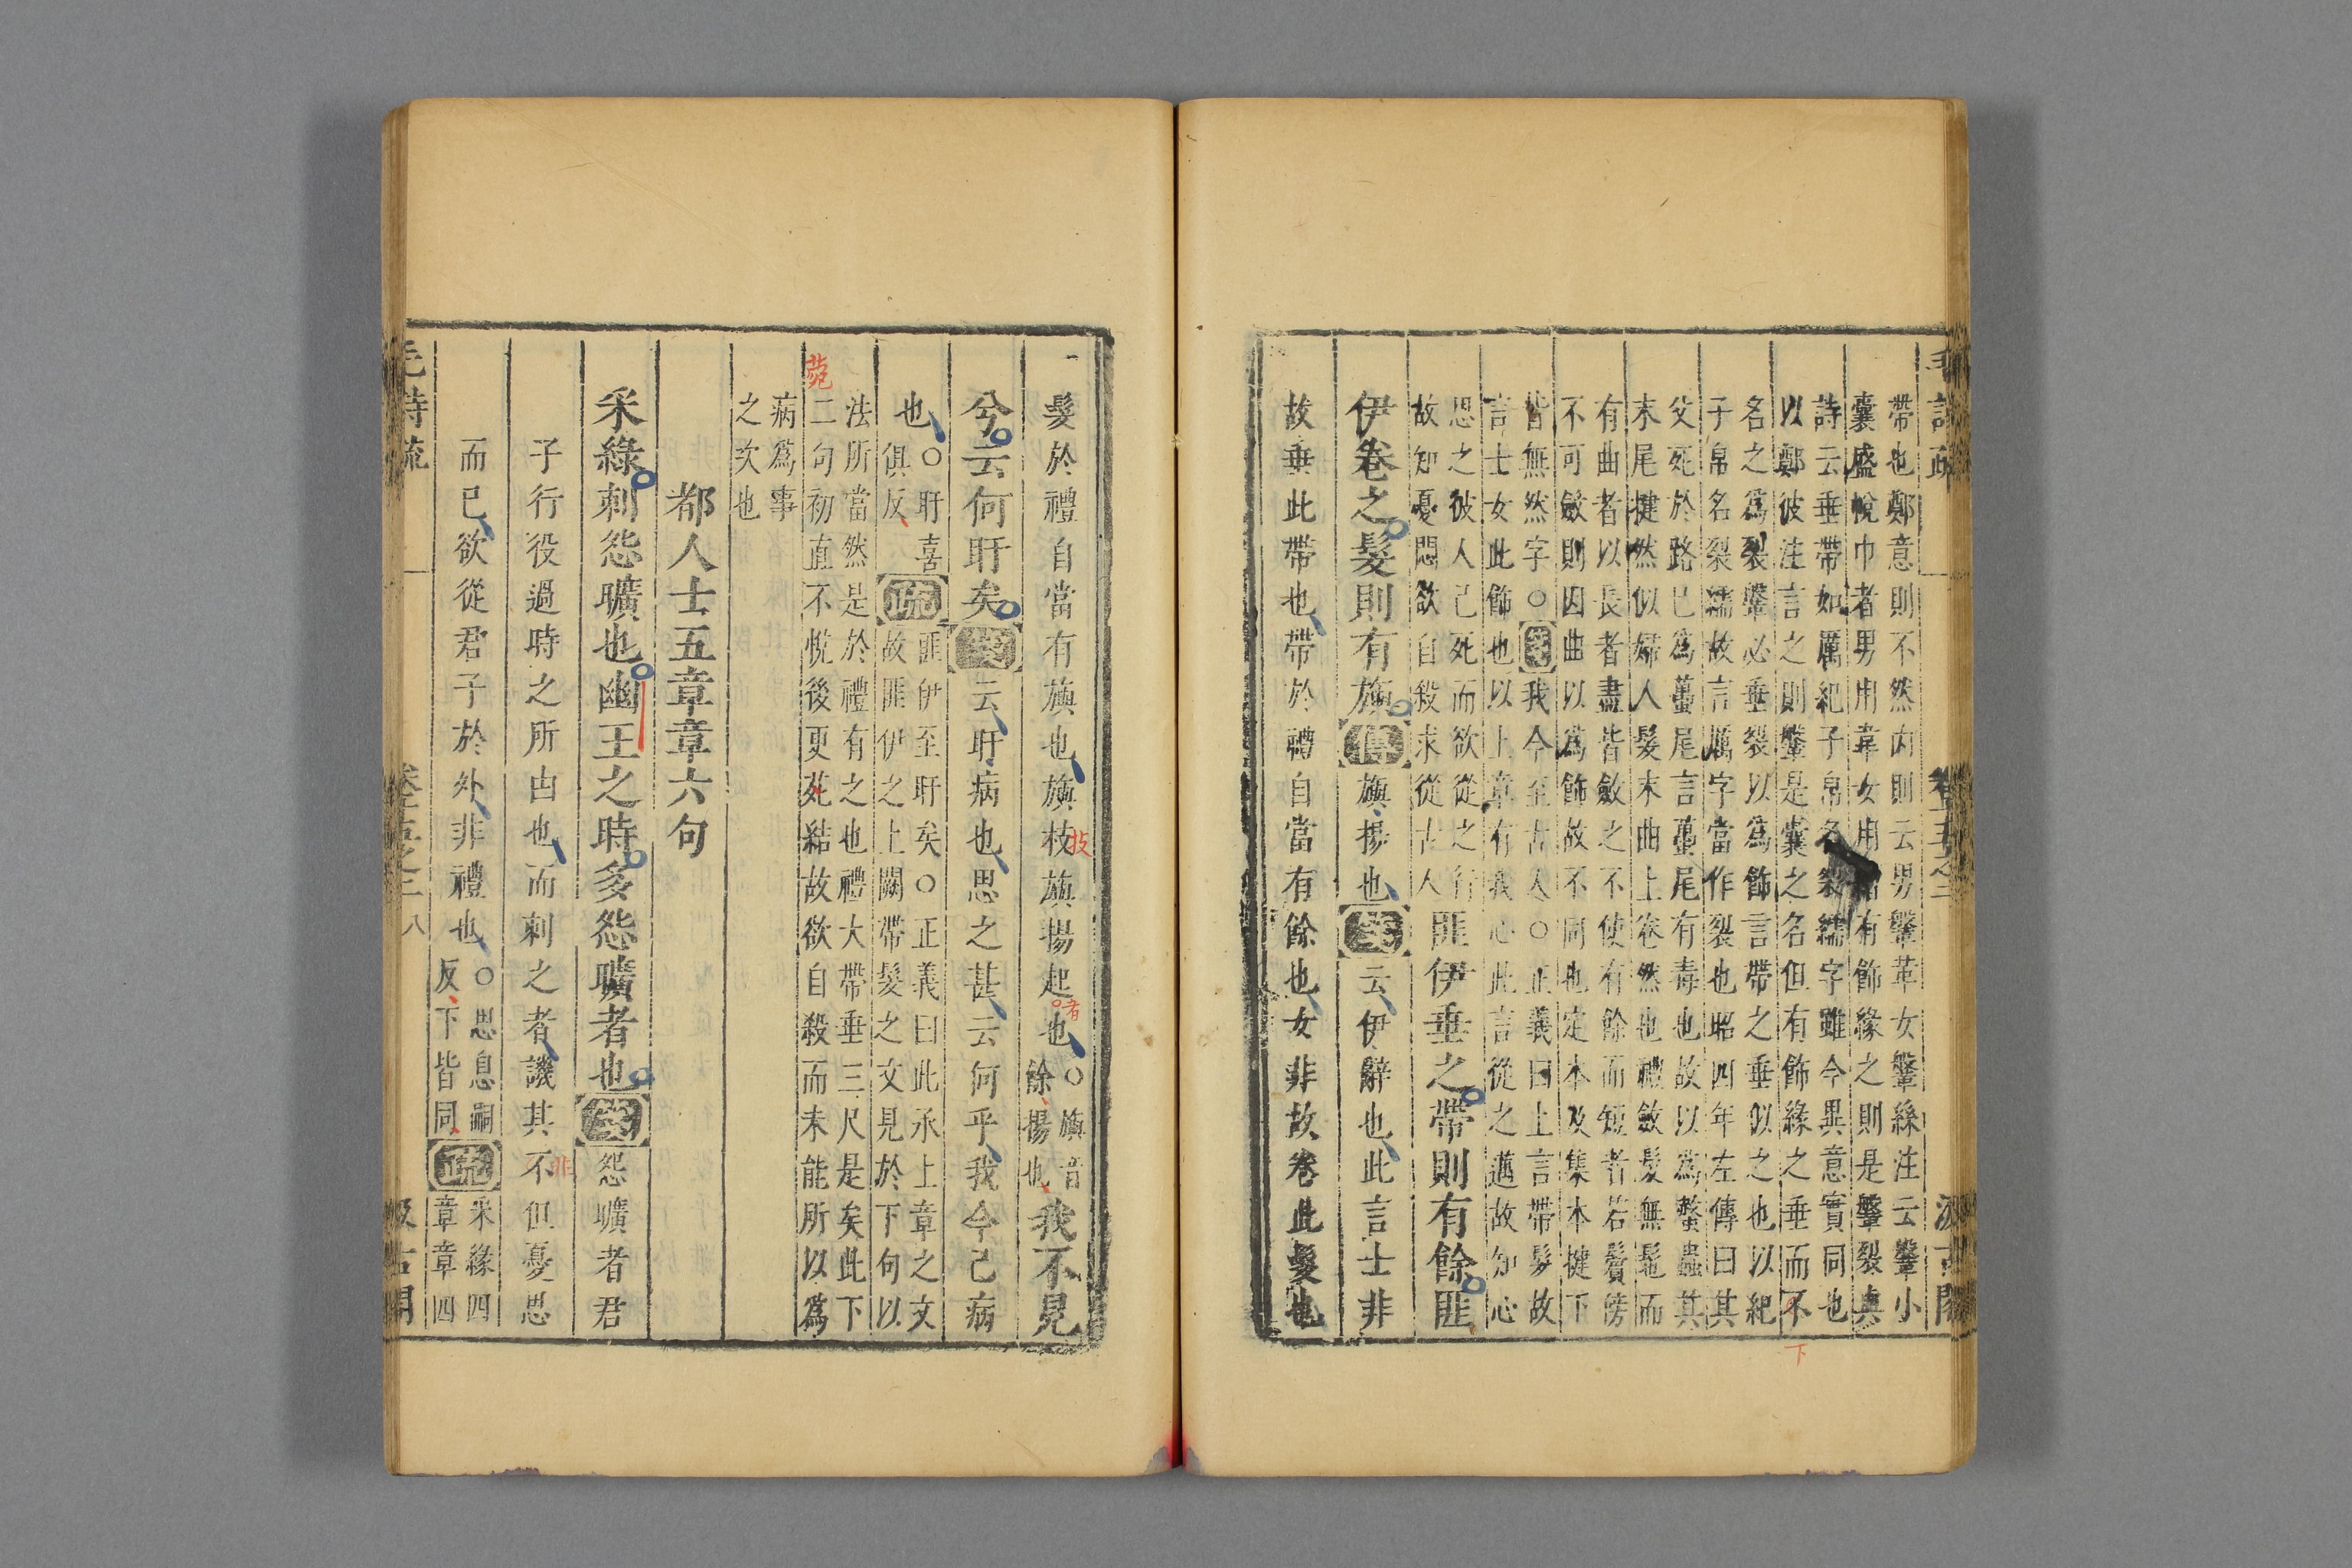 帶也鄭意則不然内則云男鞶革女鞶絲注云鞶小
囊盛帨巾者男用韋女用 有飾緣之則是鞶裂與
詩云垂帶如厲紀子帛名裂繻字雖今異意實同也
以鄭彼注言之則鞶是囊之名但有飾緣之垂而不
名之爲裂鞶必垂裂以爲飾言帶之垂似之也以紀
子帛名裂繻故言厲字當作裂也昭四年左傳曰其
父死於路已爲蠆尾言蠆尾有毒也故以爲螫蟲其
末尾揵然似婦人髮末曲上卷然也禮斂髮無髢而
有曲者以長者盡皆斂之不使有餘而短者若鬢傍
不可斂則因曲以爲飾故不同也定本及集本揵下
皆無然字○箋我今至古人○正義曰上言帶髮故
言士女此飾也以上章有我心此言從之邁故知心
思之彼人已死而欲從之行
故知憂悶欲自殺求從古人
匪伊垂之帶則有餘匪
伊卷之髮則有旟傳旟揚也箋云伊辭也此言士非
故垂此帶也帶於禮自當有餘也女非故卷此髮也
毛詩疏
卷十五之二
汲古閣
髮於禮自當有旟也旟枝旟揚起也○旟音
餘揚也
我不見
兮云何盱矣箋云盱病也思之甚云何乎我今已病
也○盱喜
俱反
疏匪伊至盱矣○正義曰此承上章之文
故匪伊之上闕帶髮之文見於下句以
法所當然是於禮有之也禮大帶垂三尺是矣此下
二句初直不悅後更苑結故欲自殺而未能所以爲
病爲事
之次也
苑
技
者
下
都人士五章章六句
采綠刺怨曠也幽王之時多怨曠者也箋怨曠者君
子行役過時之所由也而刺之者譏其不但憂思
非
而已欲從君子於外非禮也○思息嗣
反下皆同
疏采綠四
章章四
毛詩疏
卷十五之二
八
汲古閣